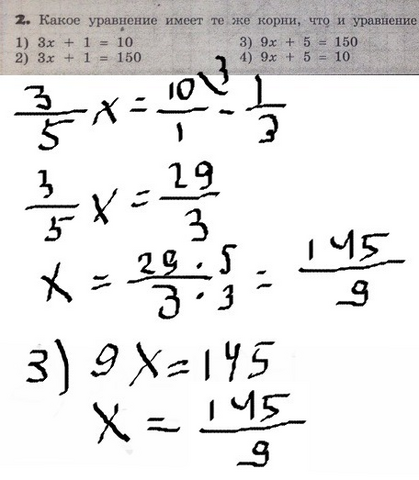 2. Какое уравнение имеет те же корни, что и уравнение
1) 3x + 1 = 10
2) 3x + 1 = 150
3) 9x + 5 = 150
4) 9x + 5 = 10
3/5 x = 10\3/1 - 1/3
3/5 x = 29/3
x = 29 · 5/3 · 3 = 145/9
3) 9x = 145
x = 145/9